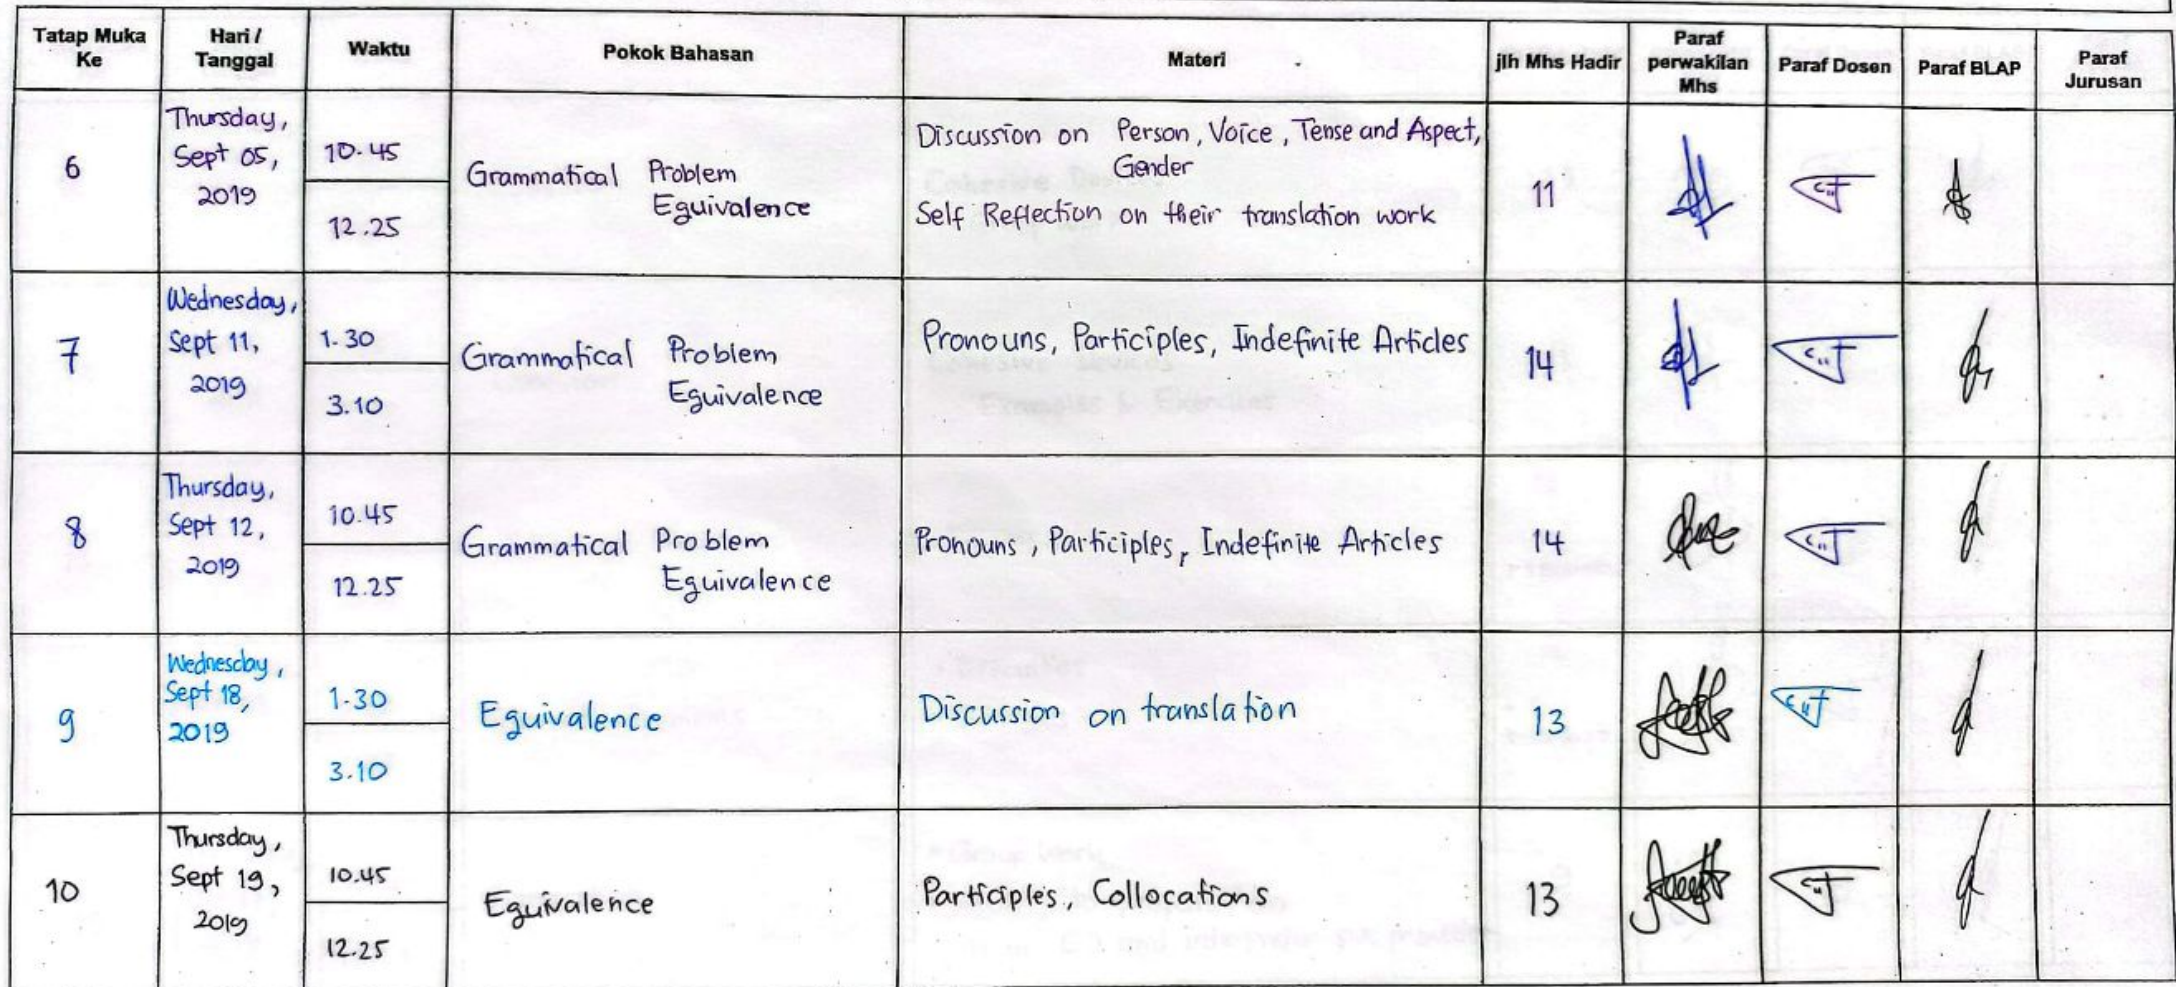 Tatap Muka Ke
Hari / Tanggal
Waktu
Pokok Bahasan
Materi
jlh Mhs Hadir
Paraf perwakilan Mhs
Paraf Dosen
Paraf BLAP
Paraf Jurusan
6
Thursday,
Sept 05,
2019
10.45
12.25
Grammatical Problem
Equivalence
Discussion on Person, Voice, Tense and Aspect,
Gender
Self Reflection on their translation work
11
7
Wednesday,
Sept 11,
2019
1.30
3.10
Grammatical Problem
Equivalence
Pronouns, Participles, Indefinite Articles
14
8
Thursday,
Sept 12,
2019
10.45
12.25
Grammatical Problem
Equivalence
Pronouns, Participles, Indefinite Articles
14
9
Wednesday,
Sept 18,
2019
1.30
3.10
Equivalence
Discussion on translation
13
10
Thursday,
Sept 19,
2019
10.45
12.25
Equivalence
Participles, Collocations
13